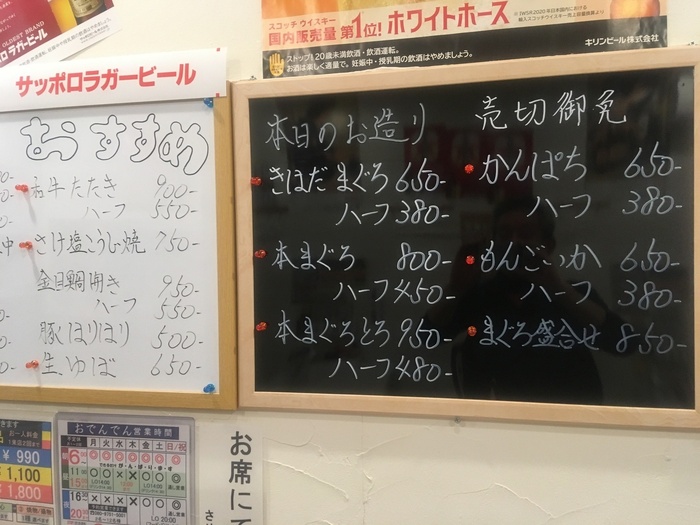 スコッチウイスキー
国内販売量 第1位! ホワイトホース
※IWSR2020年日本国内における
輸入スコッチウイスキー売上容量換算より
ストップ!20歳未満飲酒・飲酒運転。
お酒は楽しく適量で。妊娠中・授乳期の飲酒はやめましょう。
キリンビール株式会社
OLDEST BRAND
ラガービール
サッポロラガービール
おすすめ
和牛たたき 900-
ハーフ 550-
さけ塩こうじ焼 750-
金目鯛開き 950-
ハーフ 550-
豚ほりほり 500-
生ゆば 650-
本日のお造り
きはだまぐろ 650-
ハーフ 380-
本まぐろ 800-
ハーフ 450-
本まぐろとろ 950-
ハーフ 480-
売切御免
かんぱち 650-
ハーフ 380-
もんごいか 650-
ハーフ 380-
まぐろ盛合せ 850-
¥990
1,100
1,800
おでんでん営業時間
月 火 水 木 金 土 日/祝
お席にて